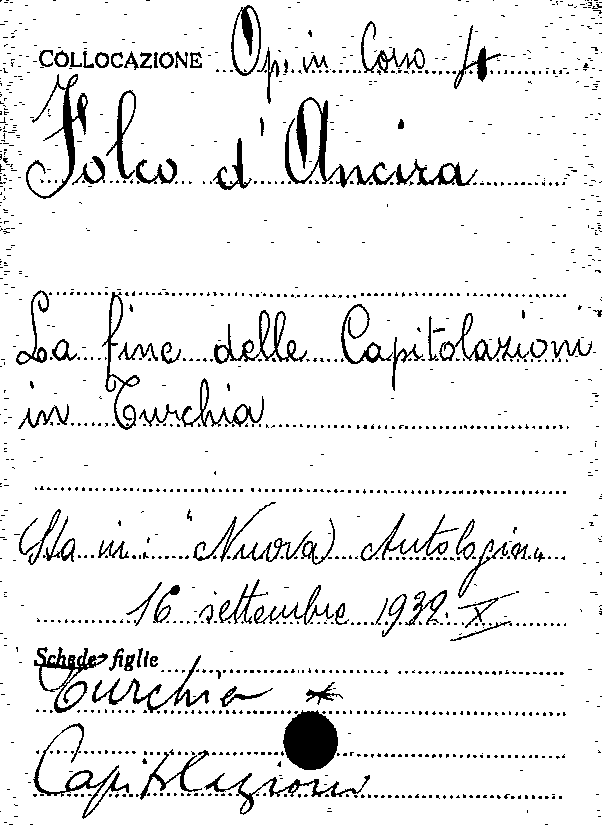 COLLOCAZIONE Op. in Corso 4
Folco d'Ancira
La fine delle Capitolazioni
in Turchia
(Sta in: "Nuova Antologia"
16 settembre 1932. X
Schede figlie
Turchia *
Capitolazioni